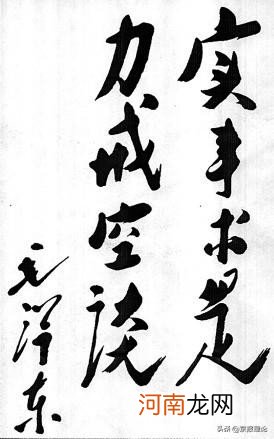 实事求是
力戒空谈
毛泽东
河南龙网
头条@蒙胞理论